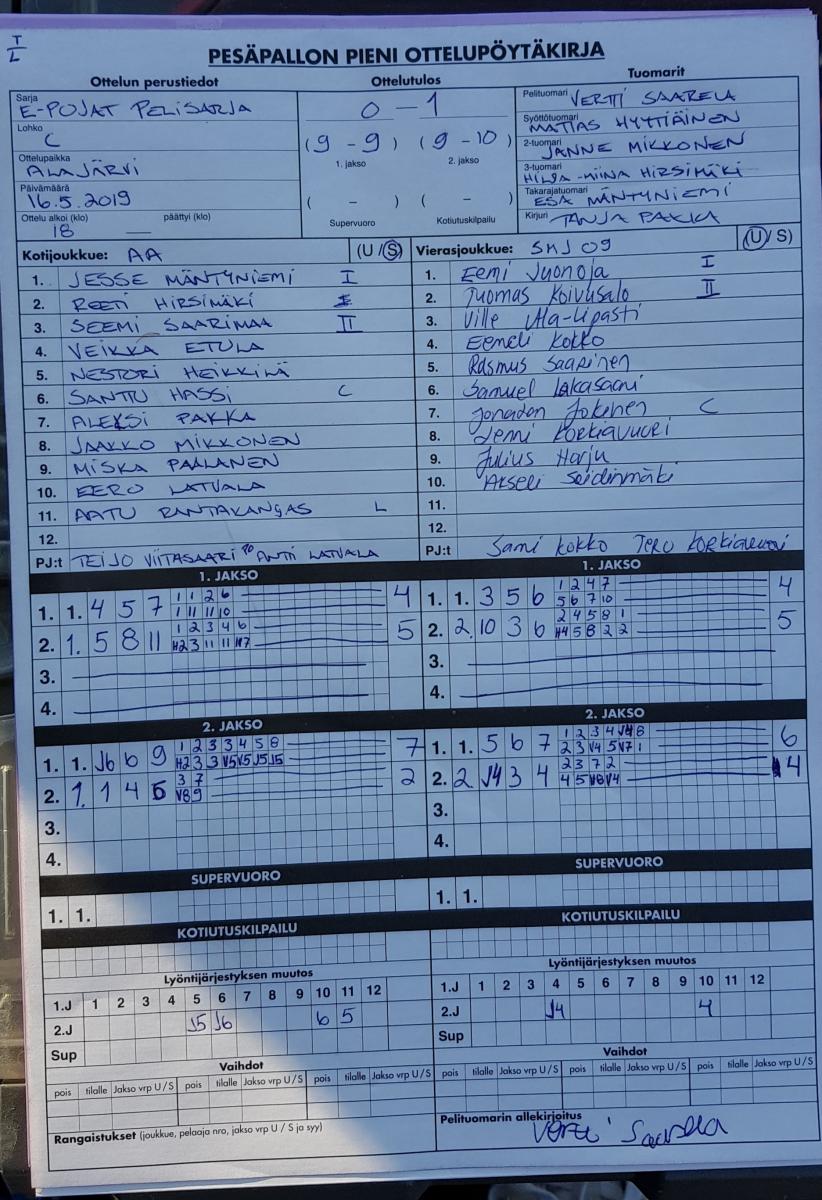 I
L
PESÄPALLON PIENI OTTELUPÖYTÄKIRJA
Ottelun perustiedot
Ottelutulos
Tuomarit
Sarja E-POJAT PELISARJA
Lohko C
Ottelupaikka ALAJÄRVI
Päivämäärä 16.5.2019
Ottelu alkoi (klo) 18 päättyi (klo) —
0 - 1
(9 - 9) (9 - 10)
1. jakso 2. jakso
( - ) ( - )
Supervuoro Kotiutuskilpailu
Pelituomari VERTTI SAARELA
Syöttötuomari MATIAS HYTTIÄINEN
2-tuomari JANNE MIKKONEN
3-tuomari HILJA-MIINA HIRSIMÄKI
Takarajatuomari ESA MÄNTYNIEMI
Kirjuri TANJA PAKKA
Kotijoukkue: AA (U / S)
1. JESSE MÄNTYNIEMI I
2. REETI HIRSIMÄKI
3. SEEMI SAARIMAA II
4. VEIKKA ETULA
5. NESTORI HEIKKILÄ
6. SANTTU HASSI C
7. ALEKSI PAKKA
8. JAAKKO MIKKONEN
9. MISKA PAALANEN
10. EERO LATVALA
11. AATU RANTAKANGAS L
12.
PJ:t TEIJO VIITASAARI ANTTI LATVALA
Vierasjoukkue: SMJ 09 (U / S)
1. Eemi Vuonoja I
2. Tuomas Koivusalo II
3. Ville Ala-Lipasti
4. Eemeli Kokko
5. Rasmus Saarinen
6. Samuel Lakasaari
7. Jonadan Jokinen C
8. Jemi Korkiavuori
9. Julius Harju
10. Akseli Seidinmäki
11.
12.
PJ:t Sami Kokko Tero Korkiavuori
1. JAKSO
1. 1. 4 5 7 1 1 2 6 4
1 11 11 10
2. 1. 5 8 11 1 2 3 4 6 5
H2 3 11 11 H7
3.
4.
1. JAKSO
1. 1. 3 5 6 1 2 4 7 4
5 6 7 10
2. 2. 10 3 6 2 4 5 8 1 5
H4 5 8 2 2
3.
4.
2. JAKSO
1. 1. J6 6 9 1 2 3 3 4 5 8 7
H2 3 3 V5 V5 J5 J5
2. 1. 1 4 5 3 7 2
V8 9
3.
4.
2. JAKSO
1. 1. 5 6 7 1 2 3 4 J4 8 6
2 3 V4 5 V7 1
2. 2 J4 3 4 2 3 7 2 4
4 5 V8 V4
3.
4.
SUPERVUORO
1. 1.
SUPERVUORO
1. 1.
KOTIUTUSKILPAILU
KOTIUTUSKILPAILU
Lyöntijärjestyksen muutos
1.J 1 2 3 4 5 6 7 8 9 10 11 12
2.J J5 J6 6 5
Sup
Lyöntijärjestyksen muutos
1.J 1 2 3 4 5 6 7 8 9 10 11 12
2.J J4 4
Sup
Vaihdot
pois tilalle Jakso vrp U / S pois tilalle Jakso vrp U / S pois tilalle Jakso vrp U / S
Vaihdot
pois tilalle Jakso vrp U / S pois tilalle Jakso vrp U / S pois tilalle Jakso vrp U / S
Rangaistukset (joukkue, pelaaja nro, jakso vrp U / S ja syy)
Pelituomarin allekirjoitus
Vertti Saarela